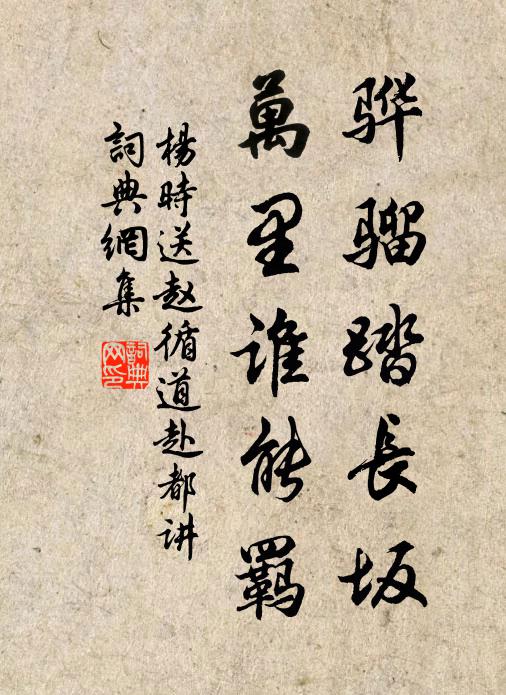 骅骝踏長坂
萬里谁能羁
楊時送赵循道赴都讲
詞典網集
詞典网印